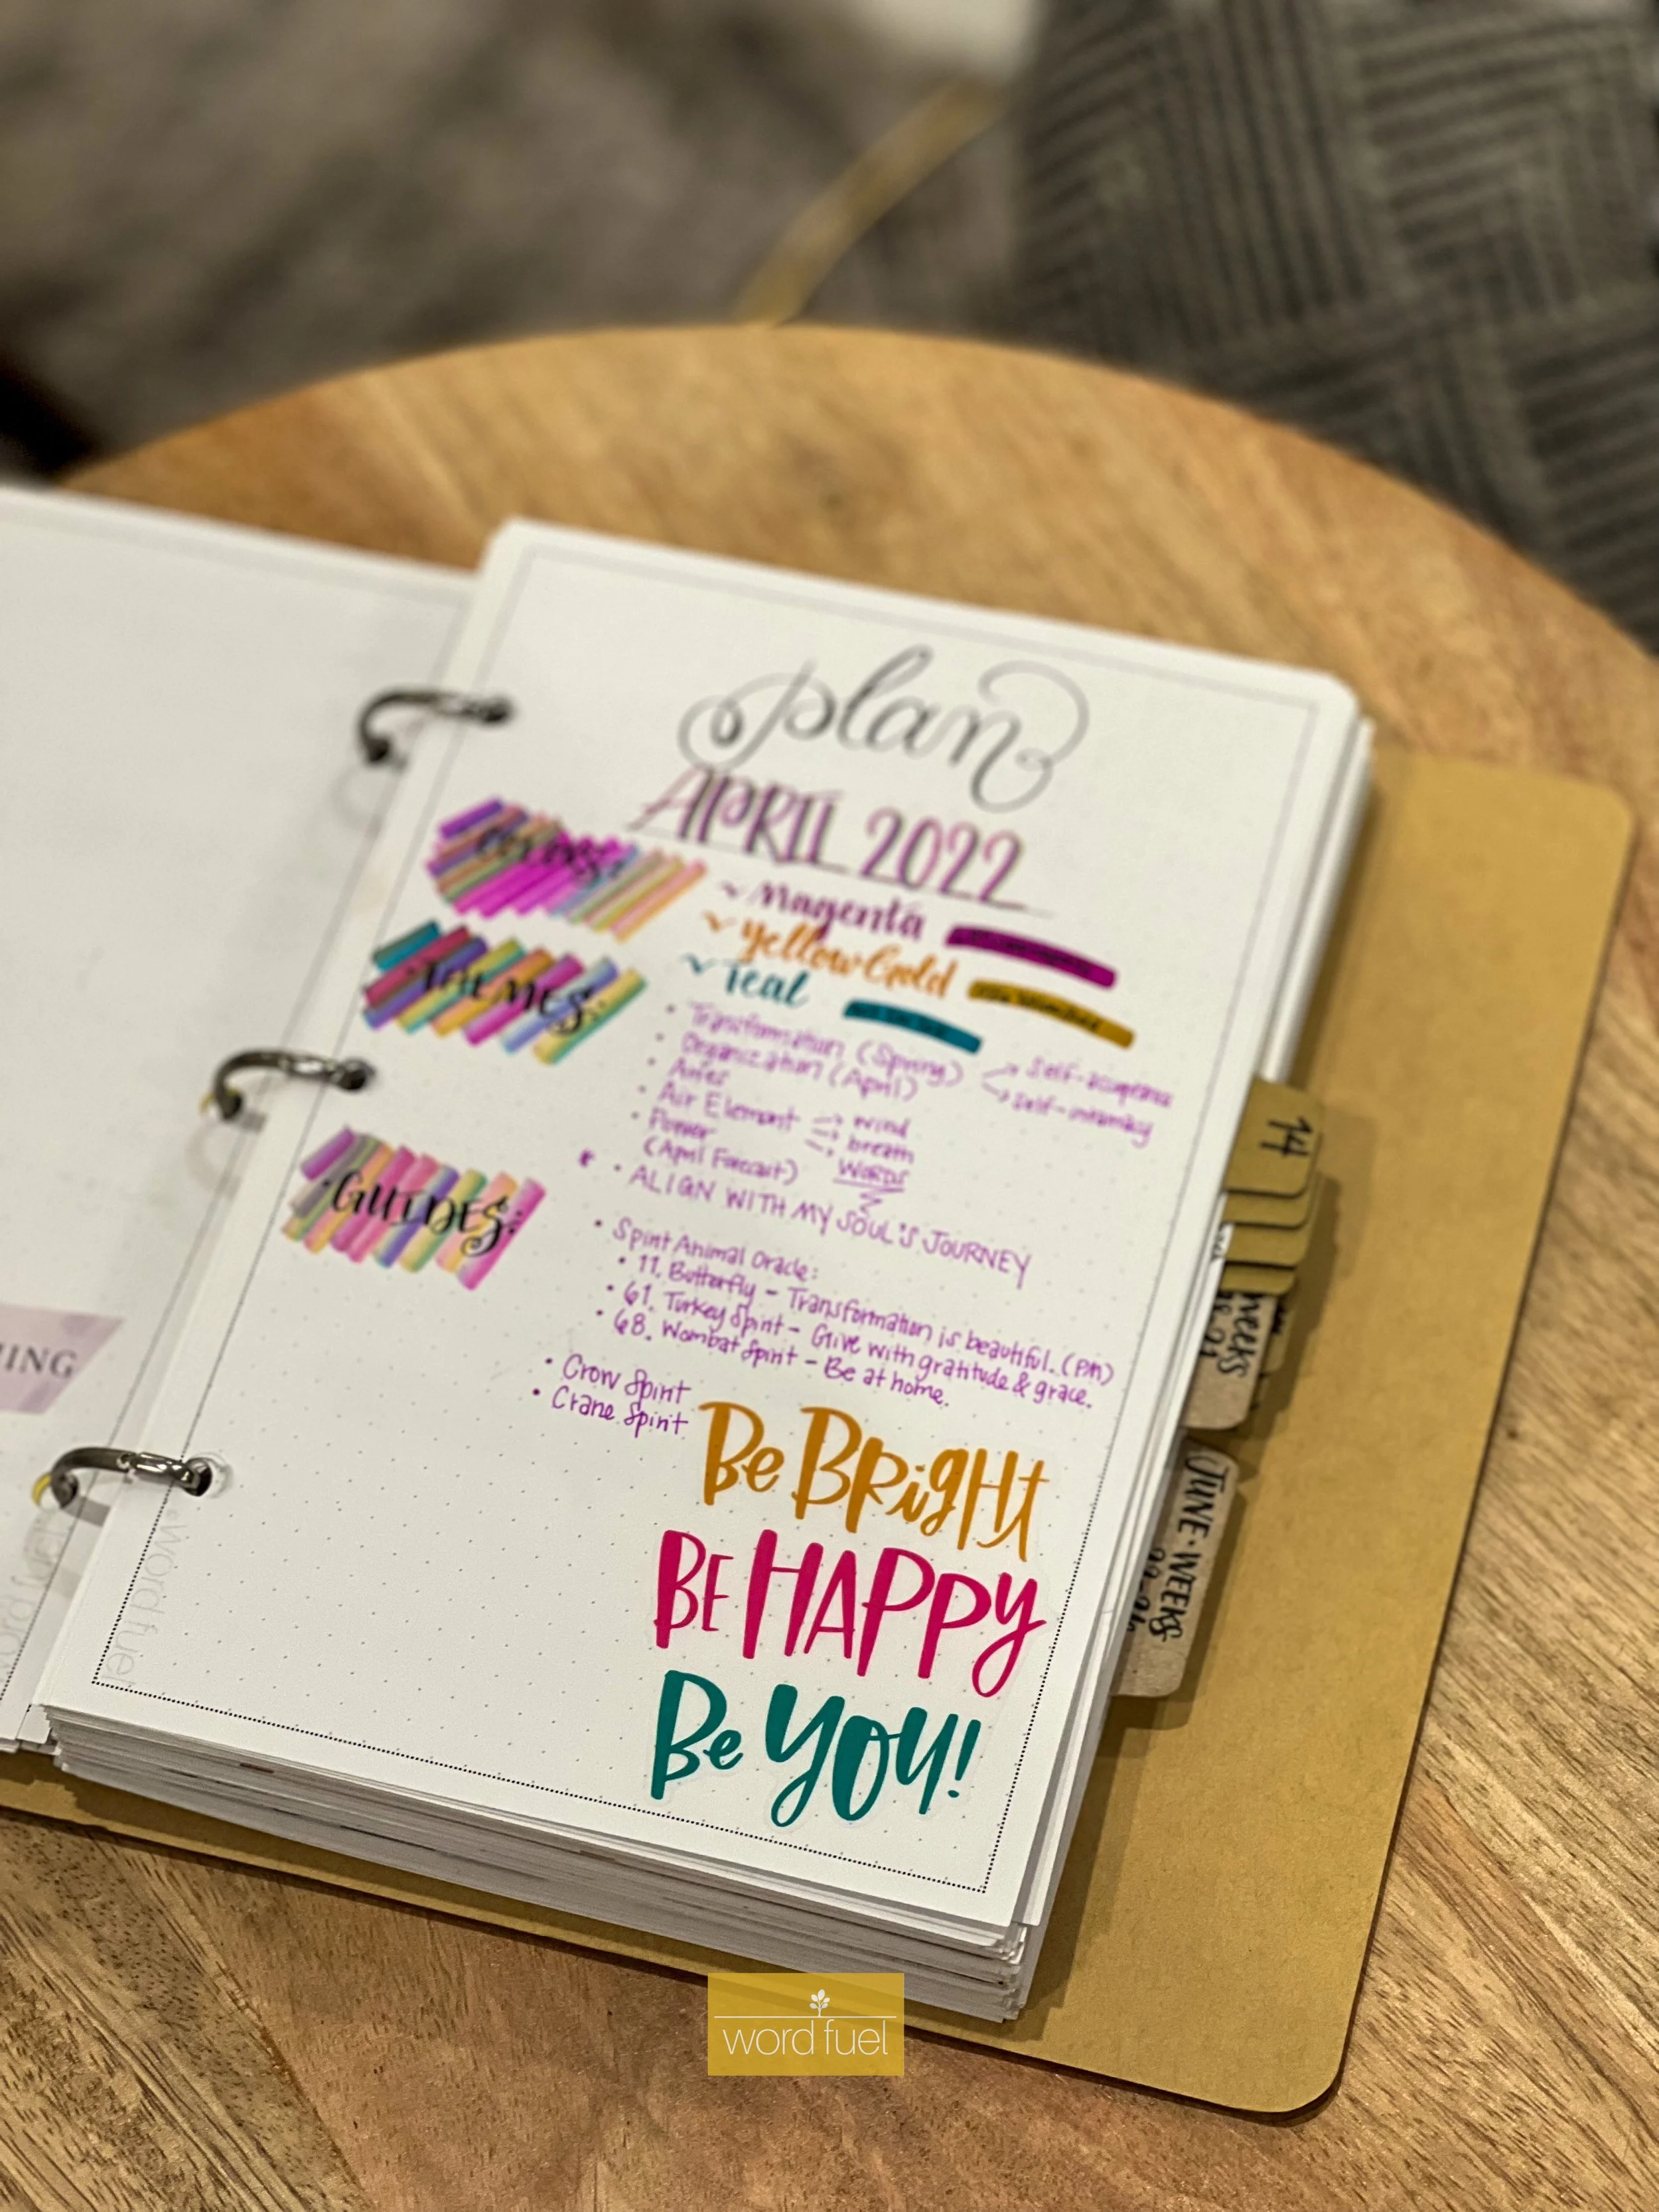 plan
APRIL 2022
COLORS:
~ Magenta
~ Yellow Gold
~ Teal
THEMES:
• Transformation (Spring) → Self-assurance
• Organization (April) → Self-intimacy
• Aries
• Air Element → wind
→ breath
→ WORDS
• Flower
(April Forecast)
• ALIGN WITH MY SOUL'S JOURNEY
GUIDES:
• Spirit Animal Oracle:
• 11. Butterfly - Transformation is beautiful. (PM)
• 61. Turkey Spirit - Give with gratitude & grace.
• 68. Wombat Spirit - Be at home.
• Crow Spirit
• Crane Spirit
Be BRigHt
BE HAPPy
Be YOU!
word fuel
14
JUNE • WEEKS
ING
word fuel